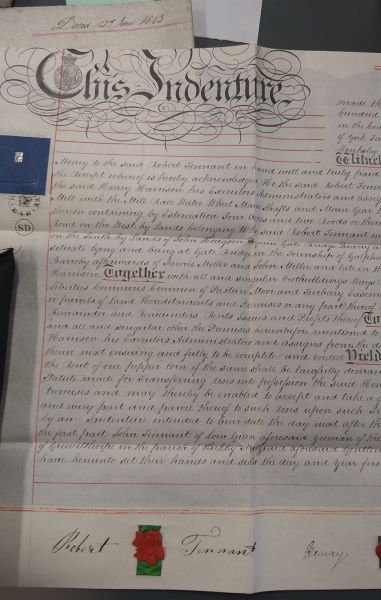 Dated 13th June 1843
This Indenture
made th
hundred
in the Cou
of York Gen
Witness
Money to the said Robert Tennant in hand well and truly paid
the Receipt whereof is hereby acknowledged He the said Robert Tennant
the said Henry Harrison his Executors Administrators and assig
Mill with the Mill Race Water Wheel Main Shafts and Main Gear
therein containing by Estimation Four Acres and two Roods or there
Road on the West by Lands belonging to the said Robert Tennant on
on the South by Lands of John Hodgson
situate lying and being at Gate Bridge in the Township of Galph
thereby afterwards of James Miller and John Miller and late in th
Harrison Together with all and singular Outbuildings Ways
Liberties Commons Common of Pasture Moor and Turbary Easeme
or parcels of Land Hereditaments and Premises or any part thereof
Remainder and Remainders Rents Issues and Profits thereof To
and all and singular other the Premises hereinbefore mentioned to
Harrison his Executors Administrators and assigns from the d
thence next ensuing and fully to be complete and ended Yield
the Rent of one pepper corn if the same shall be lawfully deman
Statute made for Transferring Uses into possession the said Hen
Premises and may thereby be enabled to accept and take a g
and every part and parcel thereof to such Uses upon such
by an Indenture intended to bear date the day next after th
the first part John Tennant of Low Green aforesaid Yeoman of the
of Grewelthorpe in the parish of Kirkby Malzeard aforesaid Gentlem
have hereunto set their hands and seals the day and year firs
SD
Robert Tennant Henry